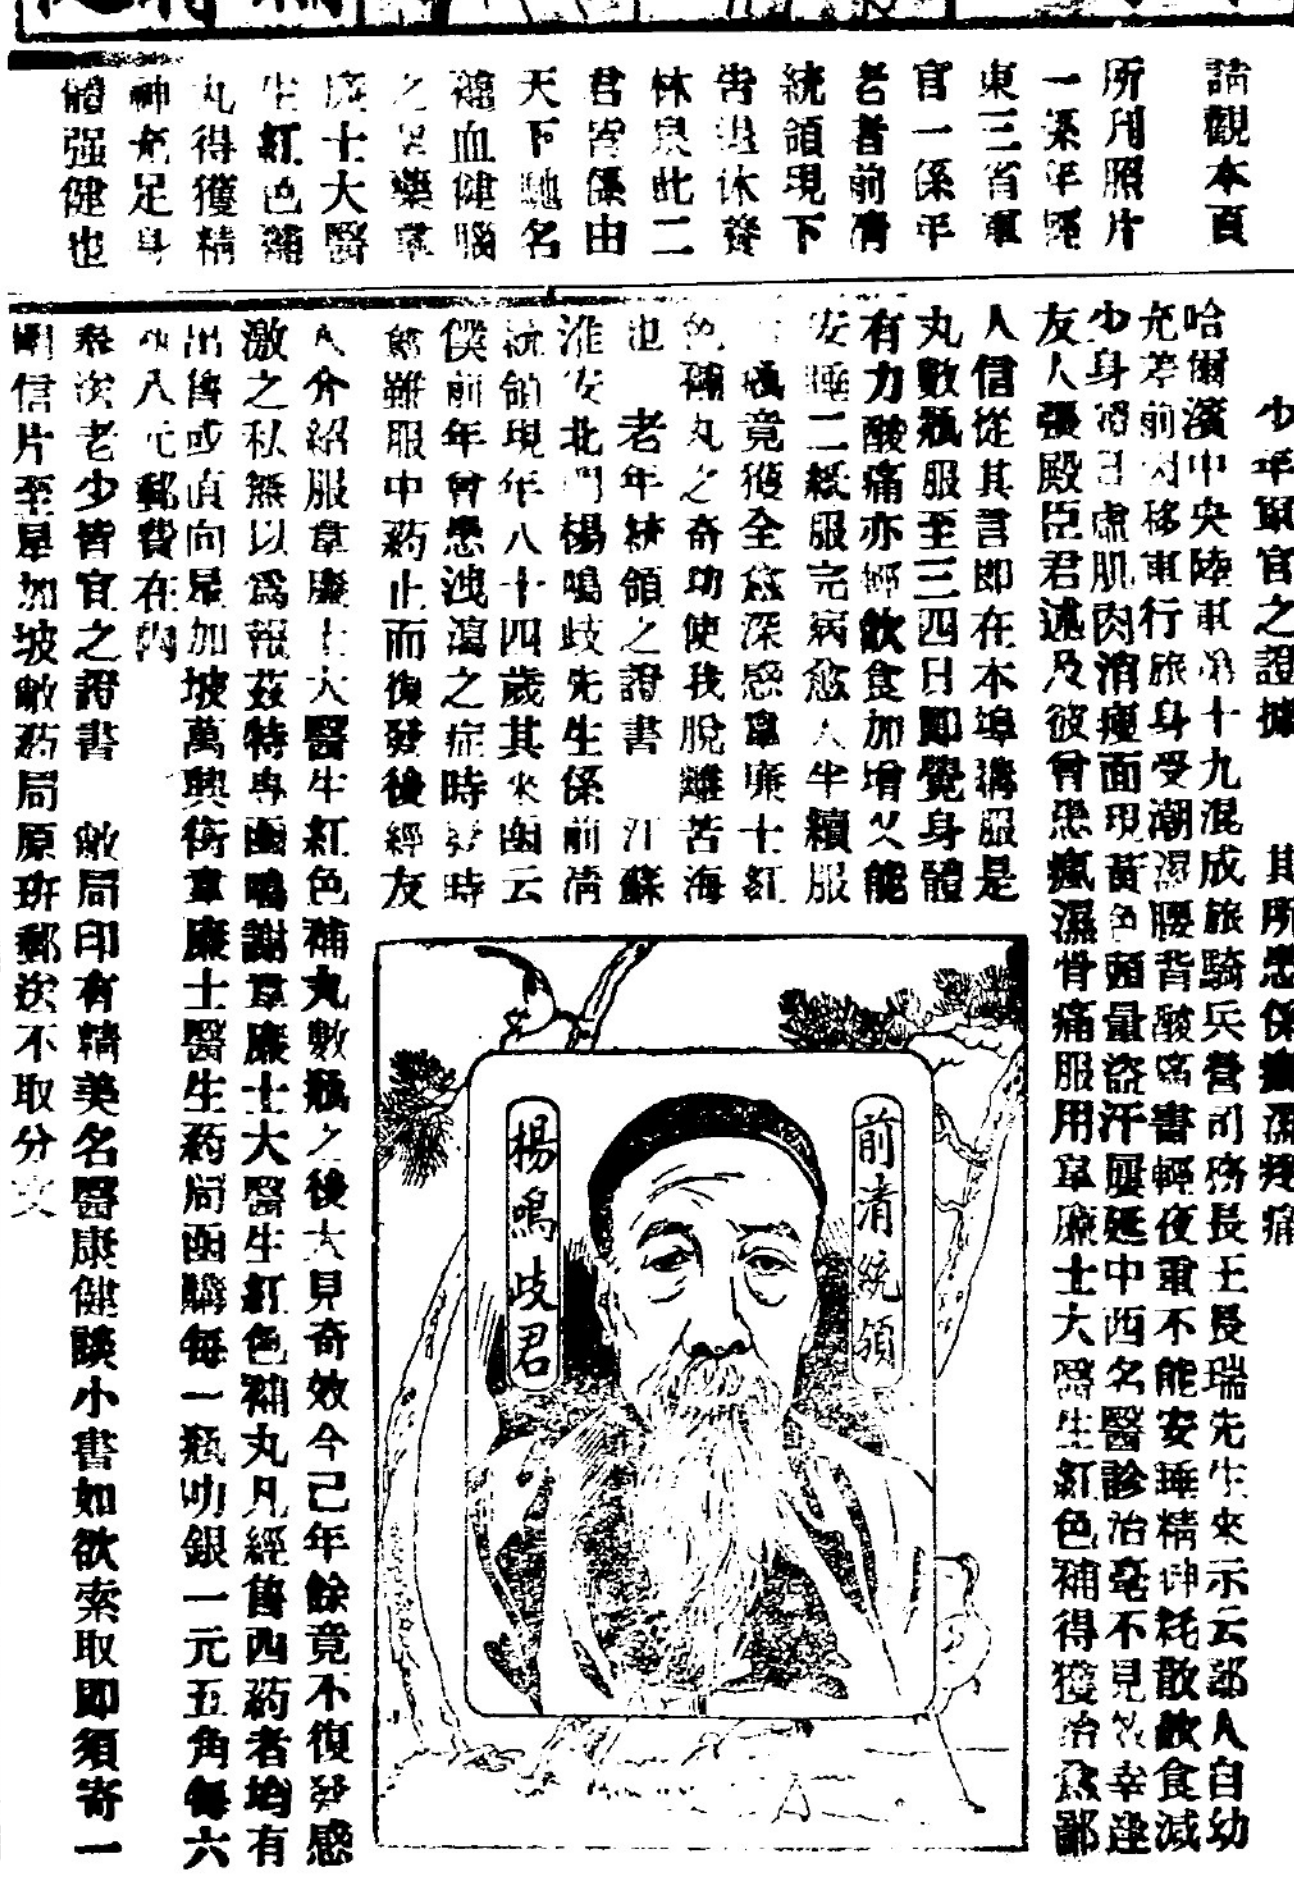 請觀本頁
所刊照片
一係年輕
東三省軍
官一係年
老者前清
統領現下
告退休養
林泉此二
君皆係由
天下馳名
補血健腦
之聖藥韋
廉士大醫
生紅色補
丸得獲精
神充足身
體强健也
少年軍官之證據 其所患係瘋濕疼痛
哈爾濱中央陸軍第十九混成旅騎兵營司務長王長瑞先生來示云鄙人自幼
充差前因移軍行旅身受潮濕腰背酸痛晝輕夜重不能安睡精神耗散飲食減
少身弱日虛肌肉消瘦面現黃色頭暈盜汗屢延中西名醫診治毫不見效幸逢
友人張殿臣君述及彼曾患瘋濕骨痛服用韋廉士大醫生紅色補得獲治愈鄙
人信從其言即在本埠購服是
丸數瓶服至三四日即覺身體
有力酸痛亦輕飲食加增又能
安睡二瓶服完病愈大半續服
瓶竟獲全愈深感韋廉士紅
色補丸之奇功使我脫離苦海
也 老年統領之證書 江蘇
淮安北門楊鳴歧先生係前清
統領現年八十四歲其來函云
僕前年曾患洩瀉之症時發時
愈雖服中葯止而復發後經友
人介紹服韋廉士大醫生紅色補丸數瓶之後大見奇效今已年餘竟不復發感
激之私無以爲報茲特專函鳴謝韋廉士大醫生紅色補丸凡經售西葯者均有
出售或直向星加坡萬興街韋廉士醫生葯局函購每一瓶叻銀一元五角每六
瓶八元郵費在內
老少皆宜之證書 敝局印有精美名醫康健談小書如欲索取即須寄一
明信片至星加坡敝葯局原班郵送不取分文
前清統領
楊鳴歧君